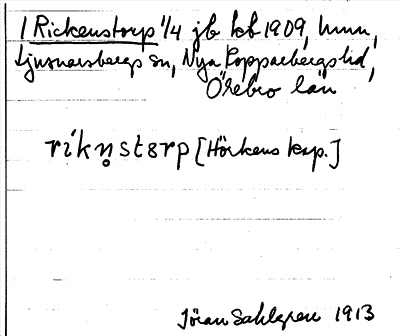 / Rickenstorp 1/4 jb kb 1909, hmn,
Ljusnarsbergs sn, Nya Kopparbergs hd,
Örebro län
rikn̥storp [Hörkens kap.]
Jöran Sahlgren 1913